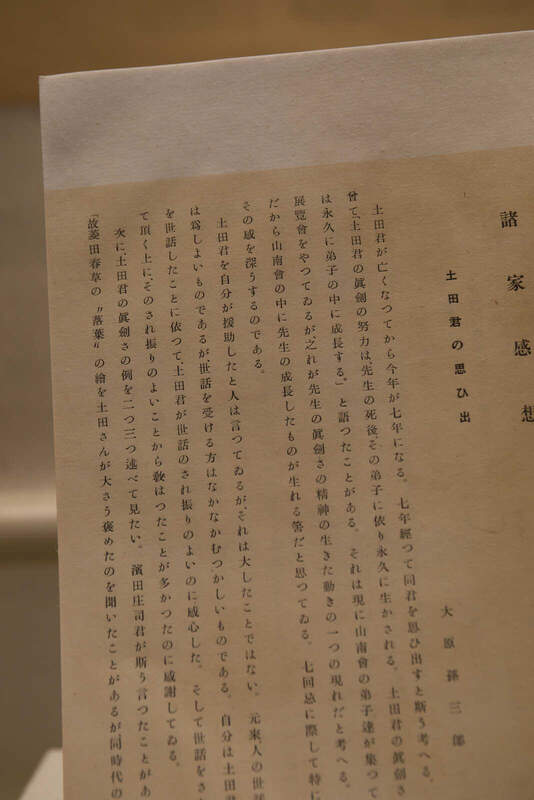 諸家感想
土田君の思ひ出
大原孫三郎
土田君が亡くなつてから今年が七年になる。七年經つて同君を思ひ出すと斯う考へる。
曾て、「土田君の眞劍の努力は、先生の死後その弟子に依り永久に生かされる。土田君の眞劍さ
は永久に弟子の中に成長する。」と語つたことがある。それは現に山南會の弟子達が集つて
展覽會をやつてゐるが、之れが先生の眞劍さの精神の生きた動きの一つの現れだと考へる。
だから山南會の中に先生の成長したものが生れる筈だと思つてゐる。七回忌に際して特に
その感を深うするのである。
土田君を自分が援助したと人は言つてゐるが、それは大したことではない。元來人の世話
は爲しよいものであるが、世話を受ける方はなかなかむつかしいものである。自分は土田君
を世話したことに依つて、土田君が世話のされ振りのよいのに感心した。そして世話をさ
て頂く上に、そのされ振りのよいことから敎はつたことが多かつたのに感謝してゐる。
次に土田君の眞劍さの例を二つ三つ述べて見たい。濱田庄司君が斯う言つたことがあ
「故菱田春草の〝落葉〟の繪を土田さんが大さう褒めたのを聞いたことがあるが、同時代の